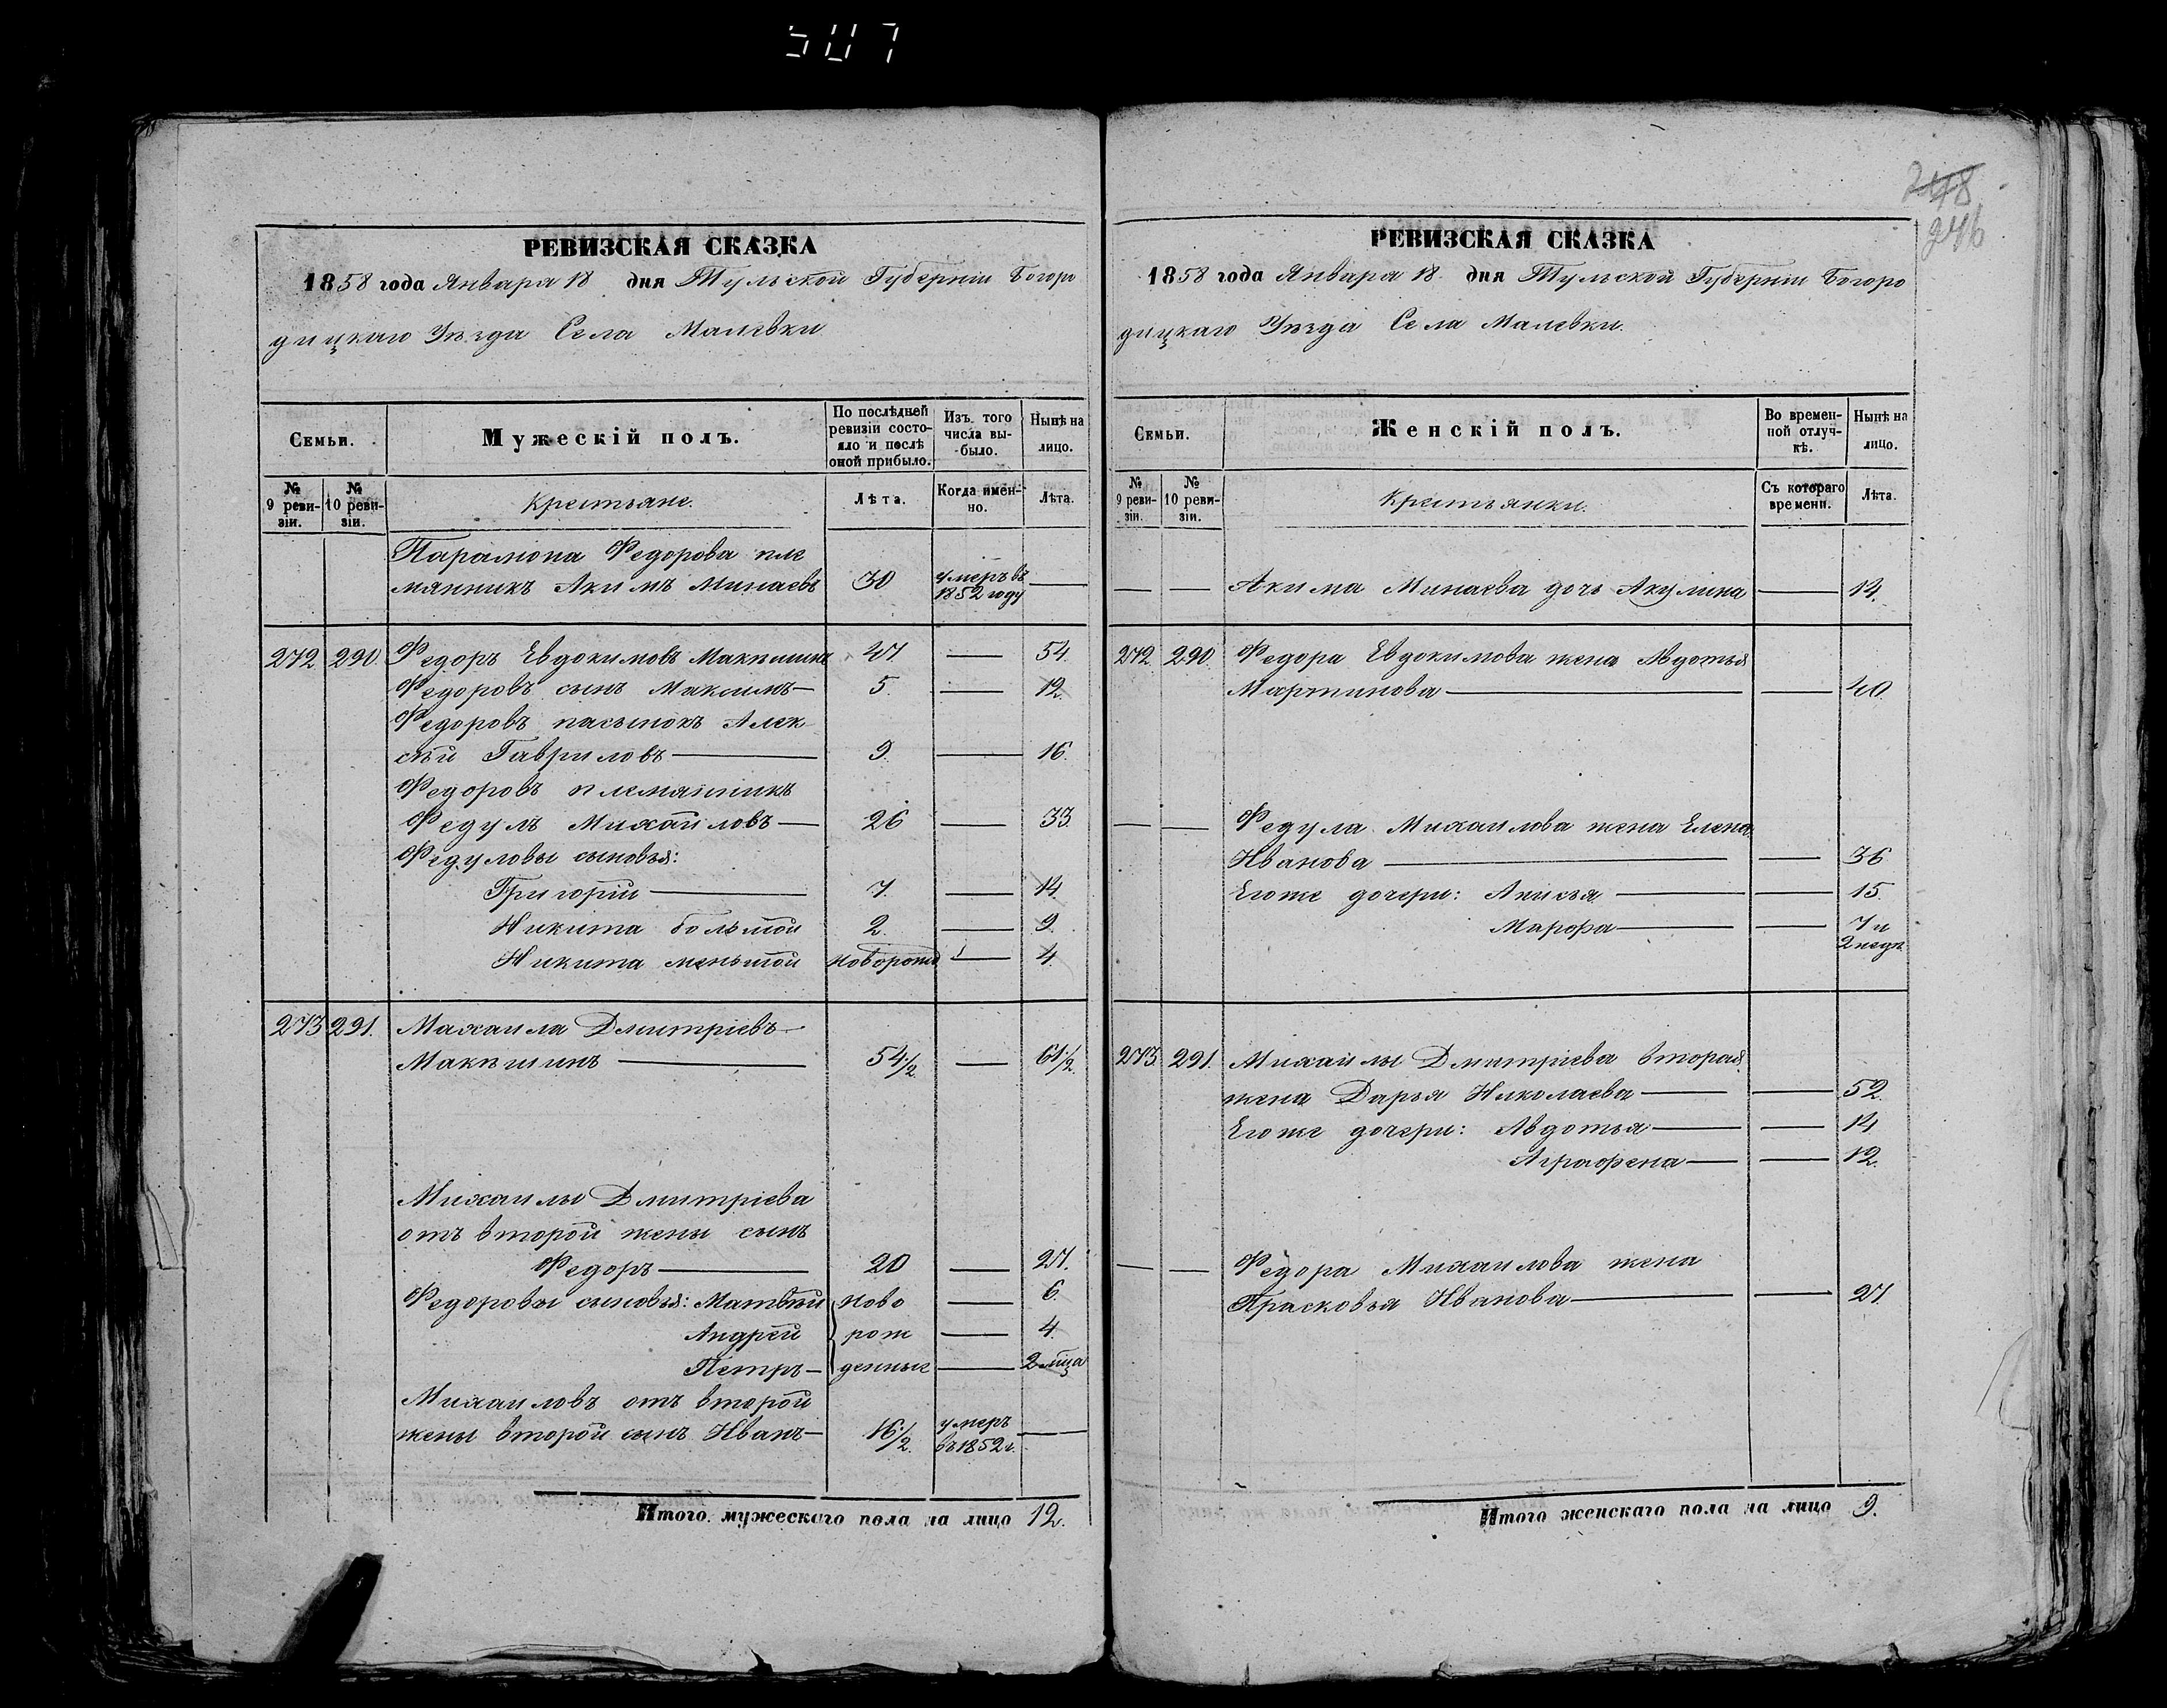 507
248
246
РЕВИЗСКАЯ СКАЗКА
1858 года Января 18 дня Тульской Губернiи Богоро
дицкаго Уѣзда Села Малевки
Семьи.
Мужескiй полъ.
По послѣдней ревизiи состояло и послѣ оной прибыло.
Изъ того числа выбыло.
Нынѣ на лицо.
№ 9 ревизiи.
№ 10 ревизiи.
Крестьяне.
Лѣта.
Когда именно.
Лѣта.
Парамона Федорова пле
мянникъ Акимъ Минаевъ 30 умеръ въ 1852 году —
272 290. Федоръ Евдокимовъ Макѣшинъ 47 — 54.
Федоровъ сынъ Максимъ — 5. — 12.
Федоровъ пасынокъ Алек
сѣй Гавриловъ — 9. — 16.
Федоровъ племянникъ
Федулъ Михайловъ — 26 — 33.
Федуловы сыновья:
Григорiй — 7. — 14.
Никита большой 2. — 9.
Никита меньшой новорожд — 4.
273 291. Михаила Дмитрiевъ
Макѣшинъ — 54 1/2. — 61 1/2.
Михаилы Дмитрiева
отъ второй жены сынъ
Федоръ — 20 — 27.
Федоровы сыновья: Матвѣй ново — 6
Андрей рож — 4.
Петръ — денные — 2 мца
Михаиловъ отъ второй
жены второй сынъ Иванъ — 16 1/2. умеръ въ 1852 г. —
Итого мужескаго пола на лицо 12.
РЕВИЗСКАЯ СКАЗКА
1858 года Января 18 дня Тульской Губернiи Богоро
дицкаго Уѣзда Села Малевки.
Семьи.
Женскiй полъ.
Во временной отлучкѣ.
Нынѣ на лицо.
№ 9 ревизiи.
№ 10 ревизiи.
Крестьянки.
Съ котораго времени.
Лѣта.
— — Акима Минаева дочь Акулина — 14.
272. 290. Федора Евдокимова жена Авдотья
Мартинова — — 40.
— — Федула Михаилова жена Елена
Иванова — — 36
Его же дочери: Анисья — — 15.
Марфа — — 7 и 2 недѣ
273. 291. Михаилы Дмитрiева вторая
жена Дарья Николаева — — 52.
Его же дочери: Авдотья — — 14
Аграфена — — 12.
— — Федора Михаилова жена
Прасковья Иванова — — 27.
Итого женскаго пола на лицо 9.